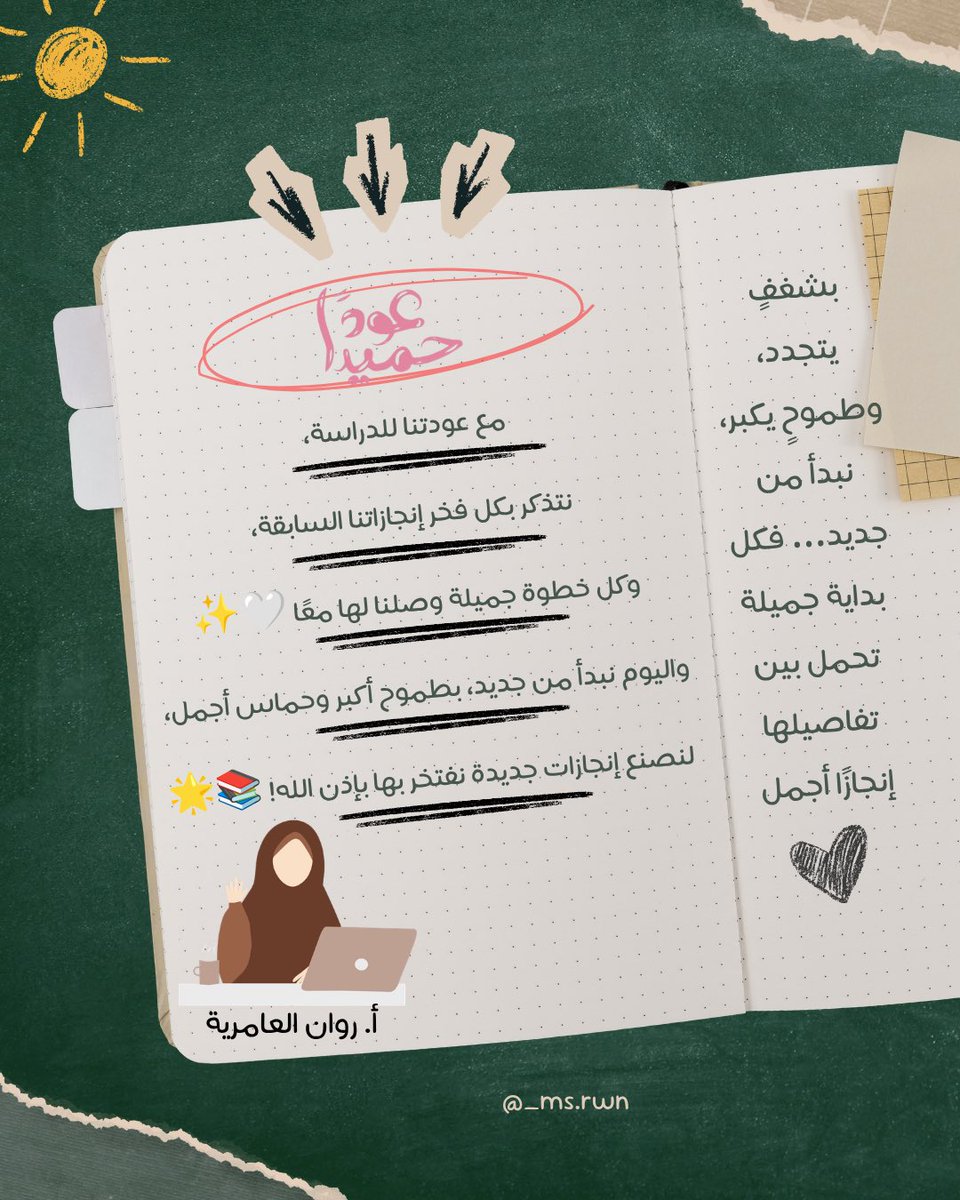 عودًا
حميدًا
مع عودتنا للدراسة،
نتذكر بكل فخر إنجازاتنا السابقة،
وكل خطوة جميلة وصلنا لها معًا 🤍✨
واليوم نبدأ من جديد، بطموح أكبر وحماس أجمل،
لنصنع إنجازات جديدة نفتخر بها بإذن الله! 📚🌟
أ. روان العامرية
بشغفٍ
يتجدد،
وطموحٍ يكبر،
نبدأ من
جديد... فكل
بداية جميلة
تحمل بين
تفاصيلها
إنجازًا أجمل
@_ms.rwn